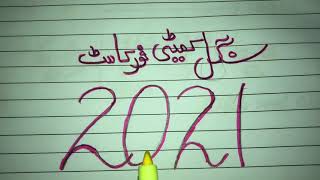 کمیٹی فورکاسٹ
2021